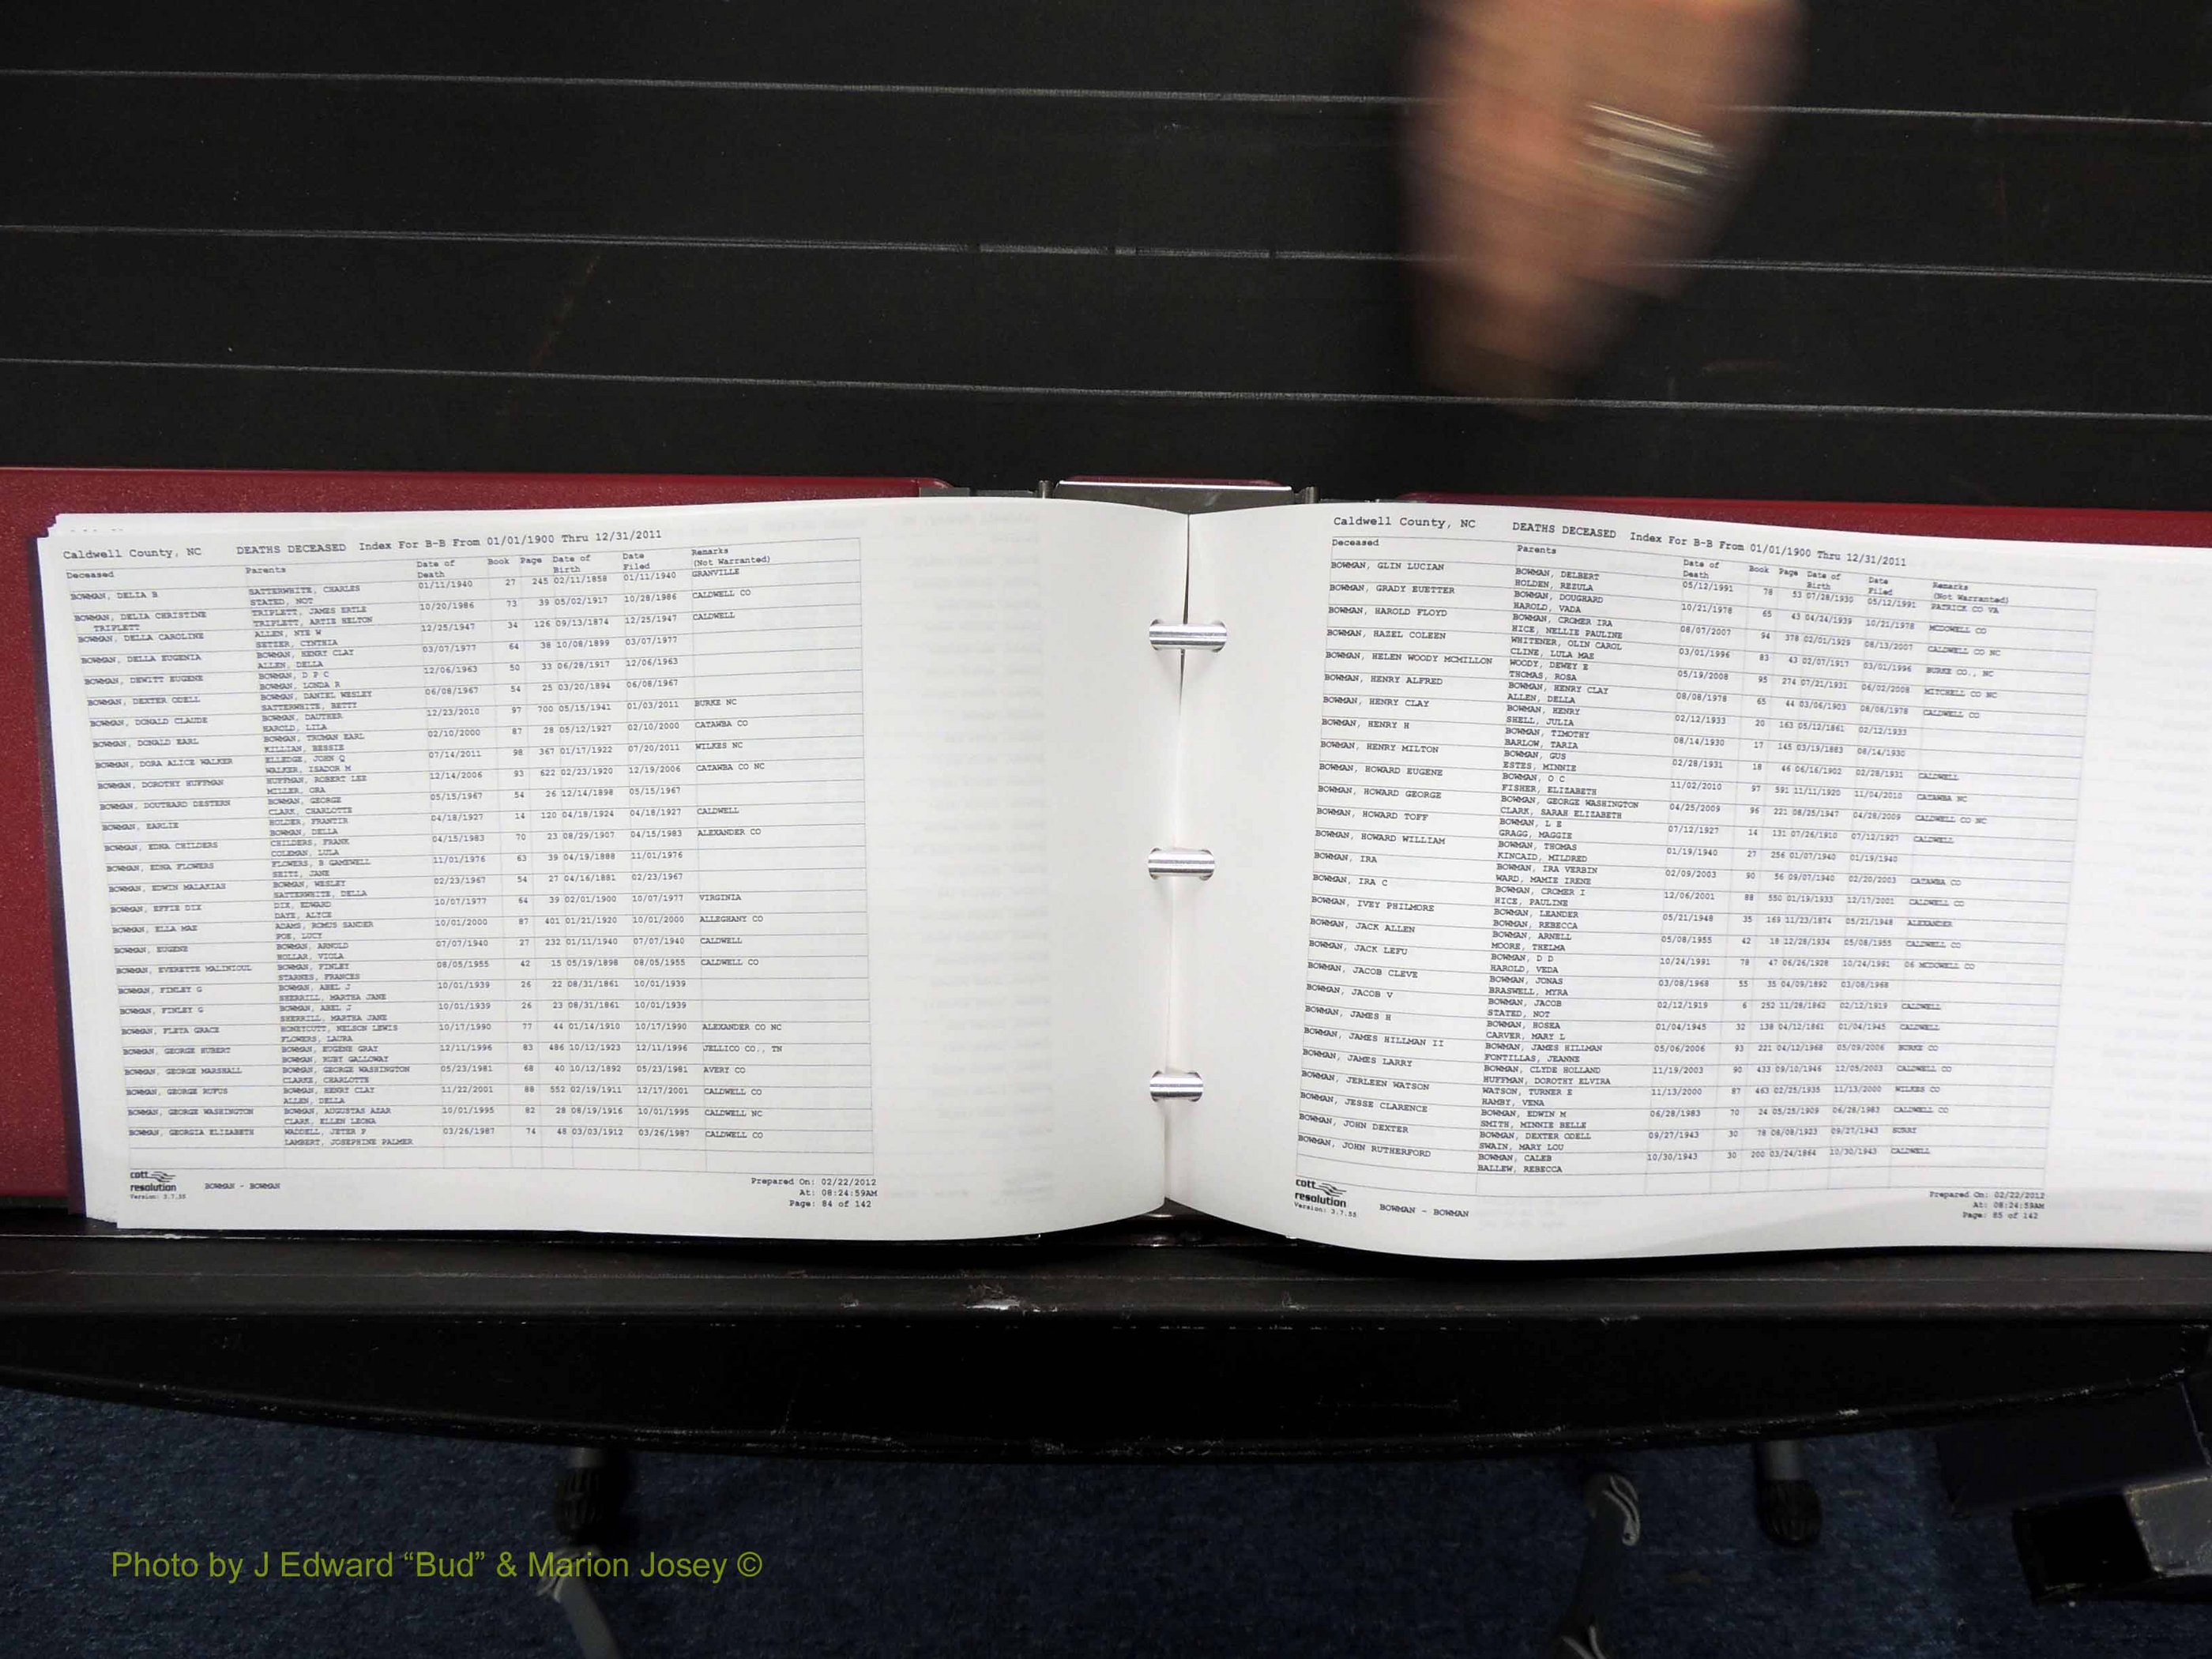 Caldwell County, NC DEATHS DECEASED Index For B-B From 01/01/1900 Thru 12/31/2011
Deceased Parents Date of Death Book Page Date of Birth Date Filed Remarks (Not Warranted)
BOWMAN, DELIA B SATTERWHITE, CHARLES 01/11/1940 27 245 02/11/1858 01/11/1940 GRANVILLE
STATED, NOT
BOWMAN, DELIA CHRISTINE TRIPLETT, JAMES ERTLE 10/20/1986 73 39 05/02/1917 10/28/1986 CALDWELL CO
TRIPLETT TRIPLETT, ARTIE HELTON
BOWMAN, DELLA CAROLINE ALLEN, NYE W 12/25/1947 34 126 09/13/1874 12/25/1947 CALDWELL
SETZER, CYNTHIA
BOWMAN, DELLA EUGENIA BOWMAN, HENRY CLAY 03/07/1977 64 38 10/08/1899 03/07/1977
ALLEN, DELLA
BOWMAN, DEWITT EUGENE BOWMAN, D P C 12/06/1963 50 33 06/28/1917 12/06/1963
BOWMAN, LONDA R
BOWMAN, DEXTER ODELL BOWMAN, DANIEL WESLEY 06/08/1967 54 25 03/20/1894 06/08/1967
SATTERWHITE, BETTY
BOWMAN, DONALD CLAUDE BOWMAN, DAUTHER 12/23/2010 97 700 05/15/1941 01/03/2011 BURKE NC
HAROLD, LILA
BOWMAN, DONALD EARL BOWMAN, TRUMAN EARL 02/10/2000 87 28 05/12/1927 02/10/2000 CATAWBA CO
KILLIAN, BESSIE
BOWMAN, DORA ALICE WALKER ELLEDGE, JOHN Q 07/14/2011 98 367 01/17/1922 07/20/2011 WILKES NC
WALKER, ISADOR M
BOWMAN, DOROTHY HUFFMAN HUFFMAN, ROBERT LEE 12/14/2006 93 622 02/23/1920 12/19/2006 CATAWBA CO NC
MILLER, ORA
BOWMAN, DOUTHARD DESTERN BOWMAN, GEORGE 05/15/1967 54 26 12/14/1898 05/15/1967
CLARK, CHARLOTTE
BOWMAN, EARLIE HOLDER, FRANTIR 04/18/1927 14 120 04/18/1924 04/18/1927 CALDWELL
BOWMAN, DELLA
BOWMAN, EDNA CHILDERS CHILDERS, FRANK 04/15/1983 70 23 08/29/1907 04/15/1983 ALEXANDER CO
COLEMAN, LULA
BOWMAN, EDNA FLOWERS FLOWERS, B GAMEWELL 11/01/1976 63 39 04/19/1888 11/01/1976
SEITZ, JANE
BOWMAN, EDWIN MALAKIAS BOWMAN, WESLEY 02/23/1967 54 27 04/16/1881 02/23/1967
SATTERWHITE, DELLA
BOWMAN, EFFIE DIX DIX, EDWARD 10/07/1977 64 39 02/01/1900 10/07/1977 VIRGINIA
DAYE, ALICE
BOWMAN, ELLA MAE ADAMS, ROMUS SANDER 10/01/2000 87 401 01/21/1920 10/01/2000 ALLEGHANY CO
POE, LUCY
BOWMAN, EUGENE BOWMAN, ARNOLD 07/07/1940 27 232 01/11/1940 07/07/1940 CALDWELL
HOLLAR, VIOLA
BOWMAN, EVERETTE MALINIOUL BOWMAN, FINLEY 08/05/1955 42 15 05/19/1898 08/05/1955 CALDWELL CO
STARNES, FRANCES
BOWMAN, FINLEY G BOWMAN, ABEL J 10/01/1939 26 22 08/31/1861 10/01/1939
SHERRILL, MARTHA JANE
BOWMAN, FINLEY G BOWMAN, ABEL J 10/01/1939 26 23 08/31/1861 10/01/1939
SHERRILL, MARTHA JANE
BOWMAN, FLETA GRACE HONEYCUTT, NELSON LEWIS 10/17/1990 77 44 01/14/1910 10/17/1990 ALEXANDER CO NC
FLOWERS, LAURA
BOWMAN, GEORGE HUBERT BOWMAN, EUGENE GRAY 12/11/1996 83 486 10/12/1923 12/11/1996 JELLICO CO., TN
BOWMAN, RUBY GALLOWAY
BOWMAN, GEORGE MARSHALL BOWMAN, GEORGE WASHINGTON 05/23/1981 68 40 10/12/1892 05/23/1981 AVERY CO
CLARKE, CHARLOTTE
BOWMAN, GEORGE RUFUS BOWMAN, HENRY CLAY 11/22/2001 88 552 02/19/1911 12/17/2001 CALDWELL CO
ALLEN, DELLA
BOWMAN, GEORGE WASHINGTON BOWMAN, AUGUSTAS AZAR 10/01/1995 82 28 08/19/1916 10/01/1995 CALDWELL NC
CLARK, ELLEN LEONA
BOWMAN, GEORGIA ELIZABETH WADDELL, JETER P 03/26/1987 74 48 03/03/1912 03/26/1987 CALDWELL CO
LAMBERT, JOSEPHINE PALMER
cott
resolution
Version: 3.7.55
BOWMAN - BOWMAN
Prepared On: 02/22/2012
At: 08:24:59AM
Page: 84 of 142
Caldwell County, NC DEATHS DECEASED Index For B-B From 01/01/1900 Thru 12/31/2011
Deceased Parents Date of Death Book Page Date of Birth Date Filed Remarks (Not Warranted)
BOWMAN, GLIN LUCIAN BOWMAN, DELBERT 05/12/1991 78 53 07/28/1930 05/12/1991 PATRICK CO VA
HOLDEN, REZULA
BOWMAN, GRADY EUETTER BOWMAN, DOUGHARD 10/21/1978 65 43 04/24/1939 10/21/1978 MCDOWELL CO
HAROLD, VADA
BOWMAN, HAROLD FLOYD BOWMAN, CROMER IRA 08/07/2007 94 378 02/01/1929 08/13/2007 CALDWELL CO NC
HICE, NELLIE PAULINE
BOWMAN, HAZEL COLEEN WHITENER, OLIN CAROL 03/01/1996 83 43 02/07/1917 03/01/1996 BURKE CO., NC
CLINE, LULA MAE
BOWMAN, HELEN WOODY MCMILLON WOODY, DEWEY E 05/19/2008 95 274 07/21/1931 06/02/2008 MITCHELL CO NC
THOMAS, ROSA
BOWMAN, HENRY ALFRED BOWMAN, HENRY CLAY 08/08/1978 65 44 03/06/1903 08/08/1978 CALDWELL CO
ALLEN, DELLA
BOWMAN, HENRY CLAY BOWMAN, HENRY 02/12/1933 20 163 05/12/1861 02/12/1933
SHELL, JULIA
BOWMAN, HENRY H BOWMAN, TIMOTHY 08/14/1930 17 145 03/19/1883 08/14/1930
BARLOW, TARIA
BOWMAN, HENRY MILTON BOWMAN, GUS 02/28/1931 18 46 06/16/1902 02/28/1931 CALDWELL
ESTES, MINNIE
BOWMAN, HOWARD EUGENE BOWMAN, O C 11/02/2010 97 591 11/11/1920 11/04/2010 CATAWBA NC
FISHER, ELIZABETH
BOWMAN, HOWARD GEORGE BOWMAN, GEORGE WASHINGTON 04/25/2009 96 221 08/25/1947 04/28/2009 CALDWELL CO NC
CLARK, SARAH ELIZABETH
BOWMAN, HOWARD TOFF BOWMAN, L E 07/12/1927 14 131 07/26/1910 07/12/1927 CALDWELL
GRAGG, MAGGIE
BOWMAN, HOWARD WILLIAM BOWMAN, THOMAS 01/19/1940 27 256 01/07/1940 01/19/1940
KINCAID, MILDRED
BOWMAN, IRA BOWMAN, IRA VERBIN 02/09/2003 90 56 09/07/1940 02/20/2003 CATAWBA CO
WARD, MAMIE IRENE
BOWMAN, IRA C BOWMAN, CROMER I 12/06/2001 88 550 01/19/1933 12/17/2001 CALDWELL CO
HICE, PAULINE
BOWMAN, IVEY PHILMORE BOWMAN, LEANDER 05/21/1948 35 169 11/23/1874 05/21/1948 ALEXANDER
BOWMAN, REBECCA
BOWMAN, JACK ALLEN BOWMAN, ARNELL 05/08/1955 42 18 12/28/1934 05/08/1955 CALDWELL CO
MOORE, THELMA
BOWMAN, JACK LEFU BOWMAN, D D 10/24/1991 78 47 06/26/1928 10/24/1991 06 MCDOWELL CO
HAROLD, VEDA
BOWMAN, JACOB CLEVE BOWMAN, JONAS 03/08/1968 55 35 04/09/1892 03/08/1968
BRASWELL, MYRA
BOWMAN, JACOB V BOWMAN, JACOB 02/12/1919 6 252 11/28/1862 02/12/1919 CALDWELL
STATED, NOT
BOWMAN, JAMES H BOWMAN, HOSEA 01/04/1945 32 138 04/12/1861 01/04/1945 CALDWELL
CARVER, MARY L
BOWMAN, JAMES HILLMAN II BOWMAN, JAMES HILLMAN 05/06/2006 93 221 04/12/1968 05/09/2006 BURKE CO
FONTILLAS, JEANNE
BOWMAN, JAMES LARRY BOWMAN, CLYDE HOLLAND 11/19/2003 90 433 09/10/1946 12/05/2003 CALDWELL CO
HUFFMAN, DOROTHY ELVIRA
BOWMAN, JERLEEN WATSON WATSON, TURNER E 11/13/2000 87 463 02/25/1935 11/13/2000 WILKES CO
HAMBY, VENA
BOWMAN, JESSE CLARENCE BOWMAN, EDWIN M 06/28/1983 70 24 05/25/1909 06/28/1983 CALDWELL CO
SMITH, MINNIE BELLE
BOWMAN, JOHN DEXTER BOWMAN, DEXTER ODELL 09/27/1943 30 78 08/08/1923 09/27/1943 SURRY
SWAIN, MARY LOU
BOWMAN, JOHN RUTHERFORD BOWMAN, CALEB 10/30/1943 30 200 03/24/1864 10/30/1943 CALDWELL
BALLEW, REBECCA
cott
resolution
Version: 3.7.55
BOWMAN - BOWMAN
Prepared On: 02/22/2012
At: 08:24:59AM
Page: 85 of 142
Photo by J Edward “Bud” & Marion Josey ©